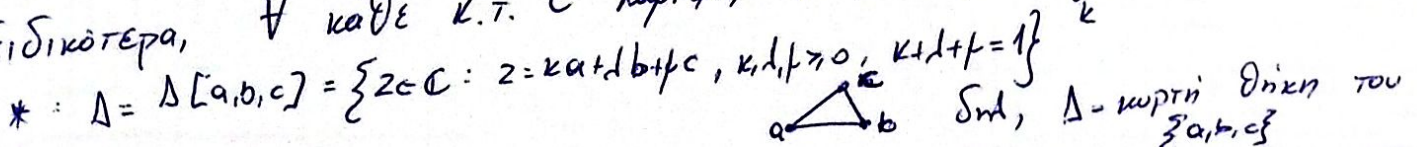 ειδικότερα, ∀ κάθε κ.τ. C
* : Δ = Δ[a,b,c] = {z∈ℂ : z = κa+λb+μc , κ,λ,μ ≥ 0, κ+λ+μ = 1}
a b c δηλ, Δ = κυρτή θήκη του {a,b,c}